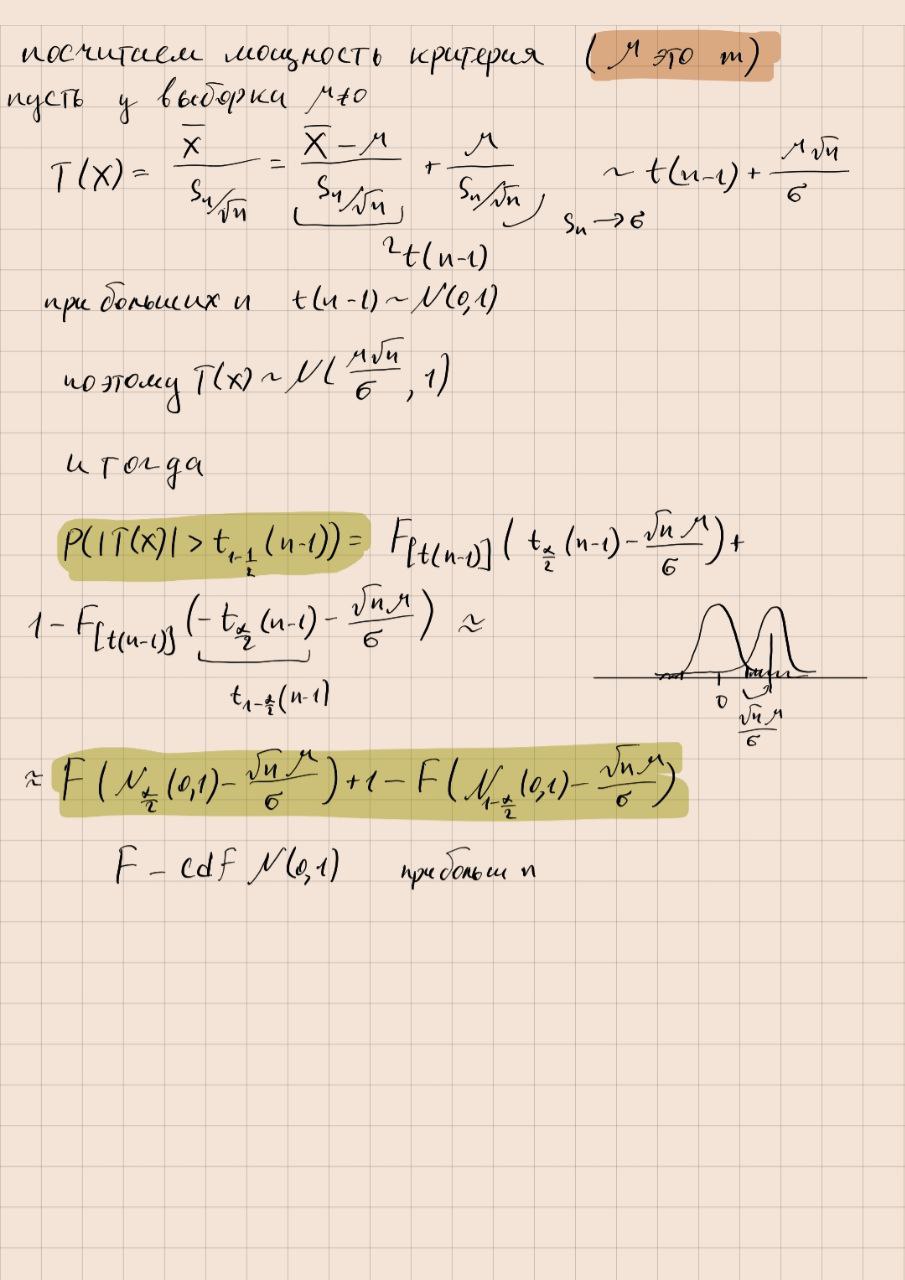 посчитаем мощность критерия (μ это m)
пусть у выборки μ≠0
T(X) = X̄ / (Sₙ/√n) = (X̄ − μ) / (Sₙ/√n) + μ / (Sₙ/√n) ~ t(n−1) + μ√n / σ
~ t(n−1) Sₙ → σ
при больших n t(n−1) ~ N(0,1)
поэтому T(x) ~ N(μ√n / σ, 1)
и тогда
P(|T(X)| > t_{1−1/2} (n−1)) = F_[t(n−1)] (t_{α/2} (n−1) − √n μ / σ) +
1 − F_[t(n−1)] (−t_{α/2} (n−1) − √n μ / σ) ≈
t_{1−α/2} (n−1)
0 √n μ / σ
≈ F (N_{α/2} (0,1) − √n μ / σ) + 1 − F (N_{1−α/2} (0,1) − √n μ / σ)
F − cdf N(0,1) при больш n